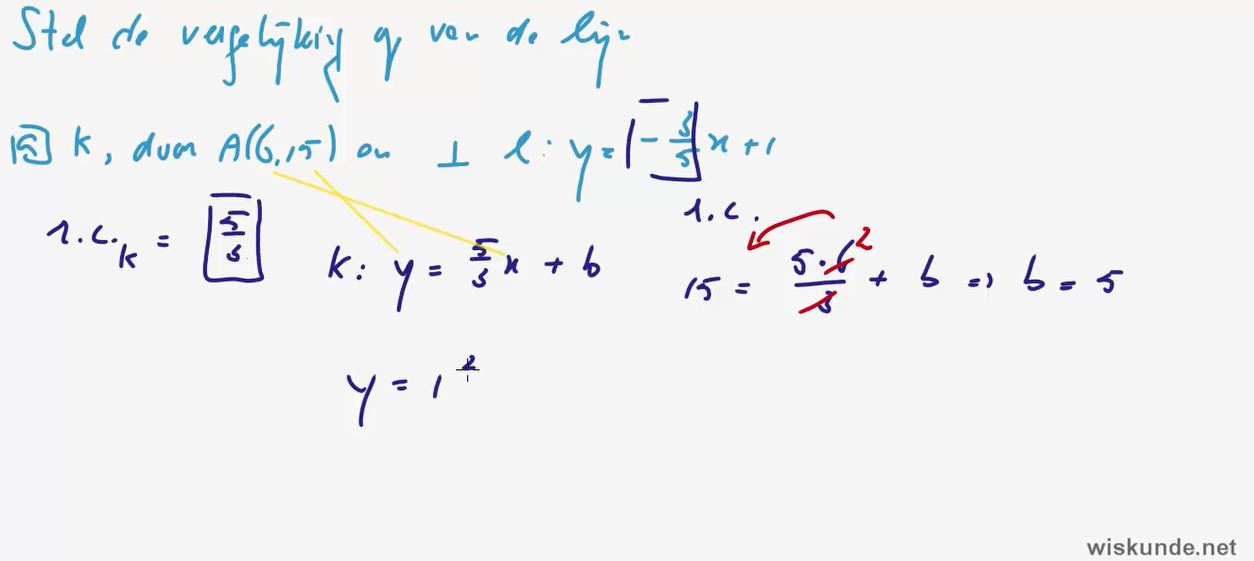 Stel de vergelijking op van de lijn
a k, door A(6,15) en ⊥ l: y = -3/5 x + 1
r.c.
r.c.k = 5/3
k: y = 5/3 x + b
15 = 5·6/3 + b => b = 5
2
y = 1 2
wiskunde.net